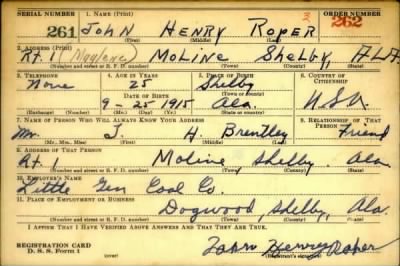 SERIAL NUMBER 1. NAME (Print) ORDER NUMBER
261 JOHN HENRY ROPER 262
(First) (Middle) (Last)
2. ADDRESS (Print)
Rt. MOLINE SHELBY, ALA.
(Number and street or R. F. D. number) (Town) (County) (State)
3. TELEPHONE 4. AGE IN YEARS 5. PLACE OF BIRTH 6. COUNTRY OF CITIZENSHIP
None 25 Shelby
DATE OF BIRTH (Town or county)
9-25-1915 Ala. U.S.A.
(Exchange) (Number) (Mo.) (Day) (Yr.) (State or country)
7. NAME OF PERSON WHO WILL ALWAYS KNOW YOUR ADDRESS 8. RELATIONSHIP OF THAT PERSON
Mr. J. H. Brentley Friend
(Mr., Mrs., Miss) (First) (Middle) (Last)
9. ADDRESS OF THAT PERSON
Rt. Moline Shelby Ala.
(Number and street or R. F. D. number) (Town) (County) (State)
10. EMPLOYER'S NAME
Little Gem Coal Co.
11. PLACE OF EMPLOYMENT OR BUSINESS
Dogwood, Shelby, Ala.
(Number and street or R. F. D. number) (Town) (County) (State)
I AFFIRM THAT I HAVE VERIFIED ABOVE ANSWERS AND THAT THEY ARE TRUE.
REGISTRATION CARD
D. S. S. Form 1 John Henry Roper
(Registrant's signature)